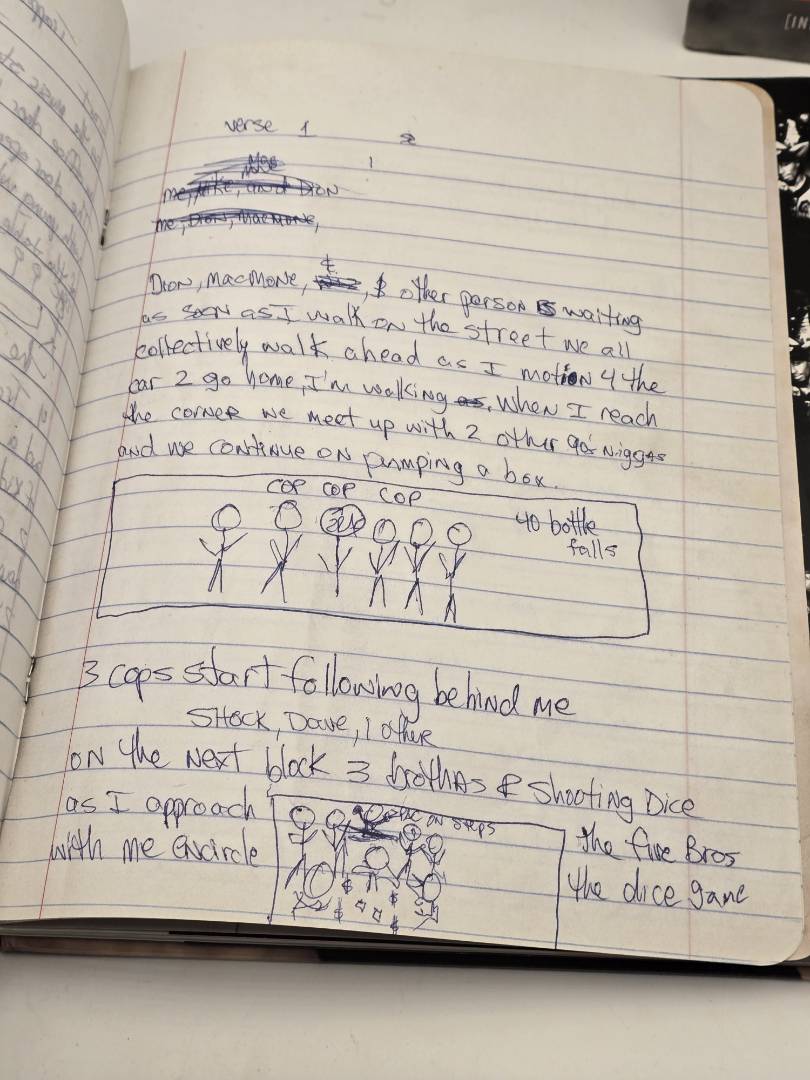 verse 1 2
me, Mike, and Dion
me, Dion, MacMone,
Dion, MacMone, & $ other person is waiting
as soon as I walk on the street we all
collectively walk ahead as I motion 4 the
car 2 go home, I'm walking as. When I reach
the corner we meet up with 2 other niggas
and we continue on pumping a box.
COP COP COP
40 bottle
falls
3 cops start following behind me
Shock, Dave, 1 other
on the next block 3 brothas & Shooting Dice
as I approach the five Bros
on steps
with me encircle the dice game